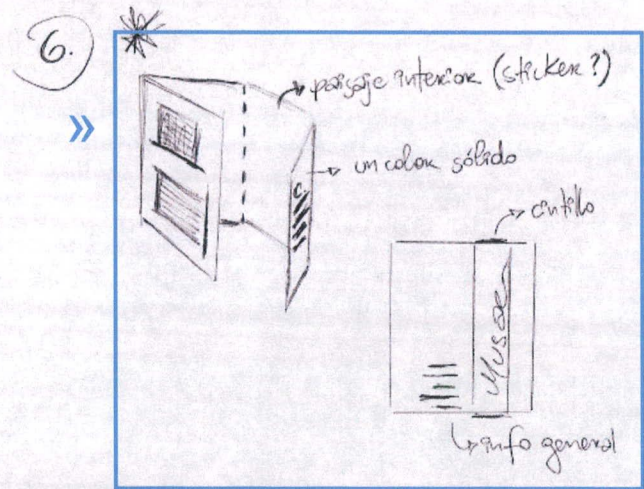 6.
paisaje interior (sticker?)
un color sólido
C.
cintillo
Museo
info general